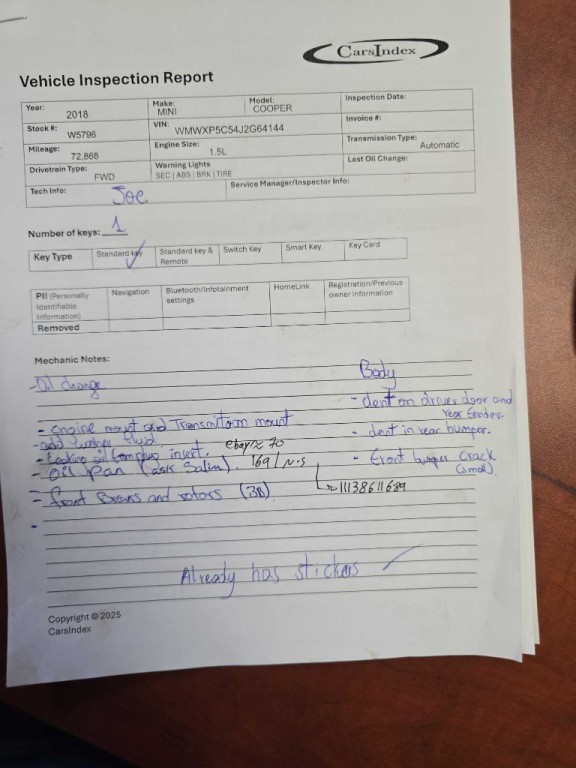 CarsIndex
Vehicle Inspection Report
Year: 2018 Make: MINI Model: COOPER Inspection Date:
Stock #: W5796 VIN: WMWXP5C54J2G64144 Invoice #:
Mileage: 72,868 Engine Size: 1.5L Transmission Type: Automatic
Drivetrain Type: FWD Warning Lights SEC | ABS | BRK | TIRE Last Oil Change:
Tech Info: Joe Service Manager/Inspector Info:
Number of keys: 1
Key Type Standard key Standard key & Remote Switch Key Smart Key Key Card
PII (Personally Identifiable Information) Navigation Bluetooth/Infotainment settings HomeLink Registration/Previous owner information
Removed
Mechanic Notes:
Body
- Oil change
- dent on driver door and
rear fender.
- engine mount and Transmition mount
- dent in rear bumper.
- add fluid.
- oil insert. ebay ≈ 70
- Front bumper crack
(small)
- Oil Pan (ask Salim). 169 / N.S
≈ 11138611689
- front Breaks and rotors (3B)
Already has stickers
Copyright © 2025
CarsIndex